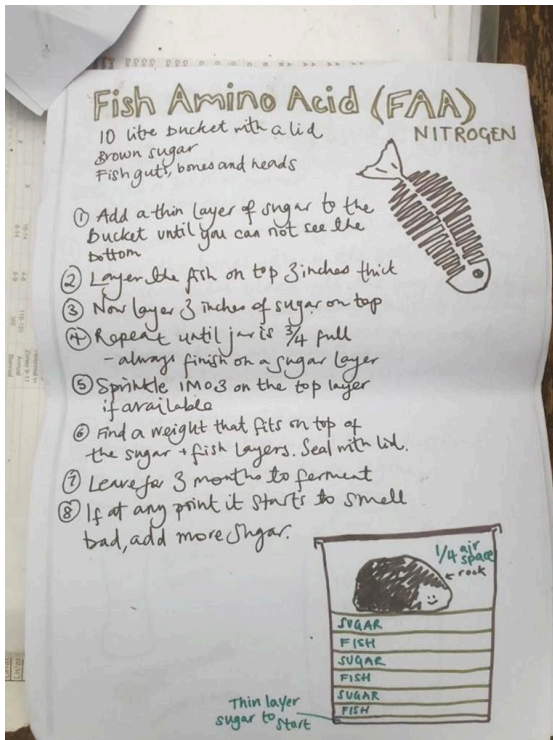 Fish Amino Acid (FAA)
NITROGEN
10 litre bucket with a lid
Brown sugar
Fish guts, bones and heads
① Add a thin layer of sugar to the
bucket until you can not see the
bottom
② Layer the fish on top 3 inches thick
③ Now layer 3 inches of sugar on top
④ Repeat until jar is 3/4 full
- always finish on a sugar layer
⑤ Sprinkle IMO3 on the top layer
if available
⑥ Find a weight that fits on top of
the sugar + fish layers. Seal with lid.
⑦ Leave for 3 months to ferment
⑧ If at any point it starts to smell
bad, add more sugar.
1/4 air
space
rock
SUGAR
FISH
SUGAR
FISH
SUGAR
FISH
Thin layer
sugar to start